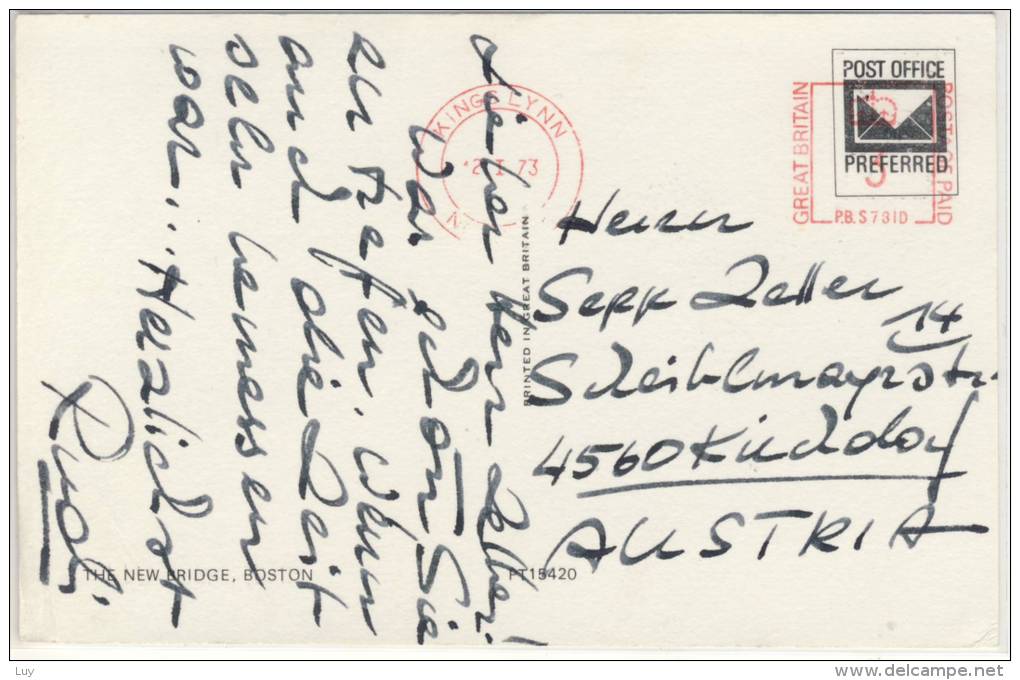 Lieber Herr Zeller!
War schön Sie
zu treffen, wenn
auch die Zeit
sehr bemessen
war.... Herzlichst
Rudi
KINGS LYNN
2 I 73
POST OFFICE
PREFERRED
GREAT BRITAIN
POSTAGE PAID
3
P.B. S731D
PRINTED IN GREAT BRITAIN
Herrn
Sepp Zeller
14
Scheiblmayrstr.
4560 Kirchdorf
AUSTRIA
THE NEW BRIDGE, BOSTON
PT15420
Luy
www.delcampe.net